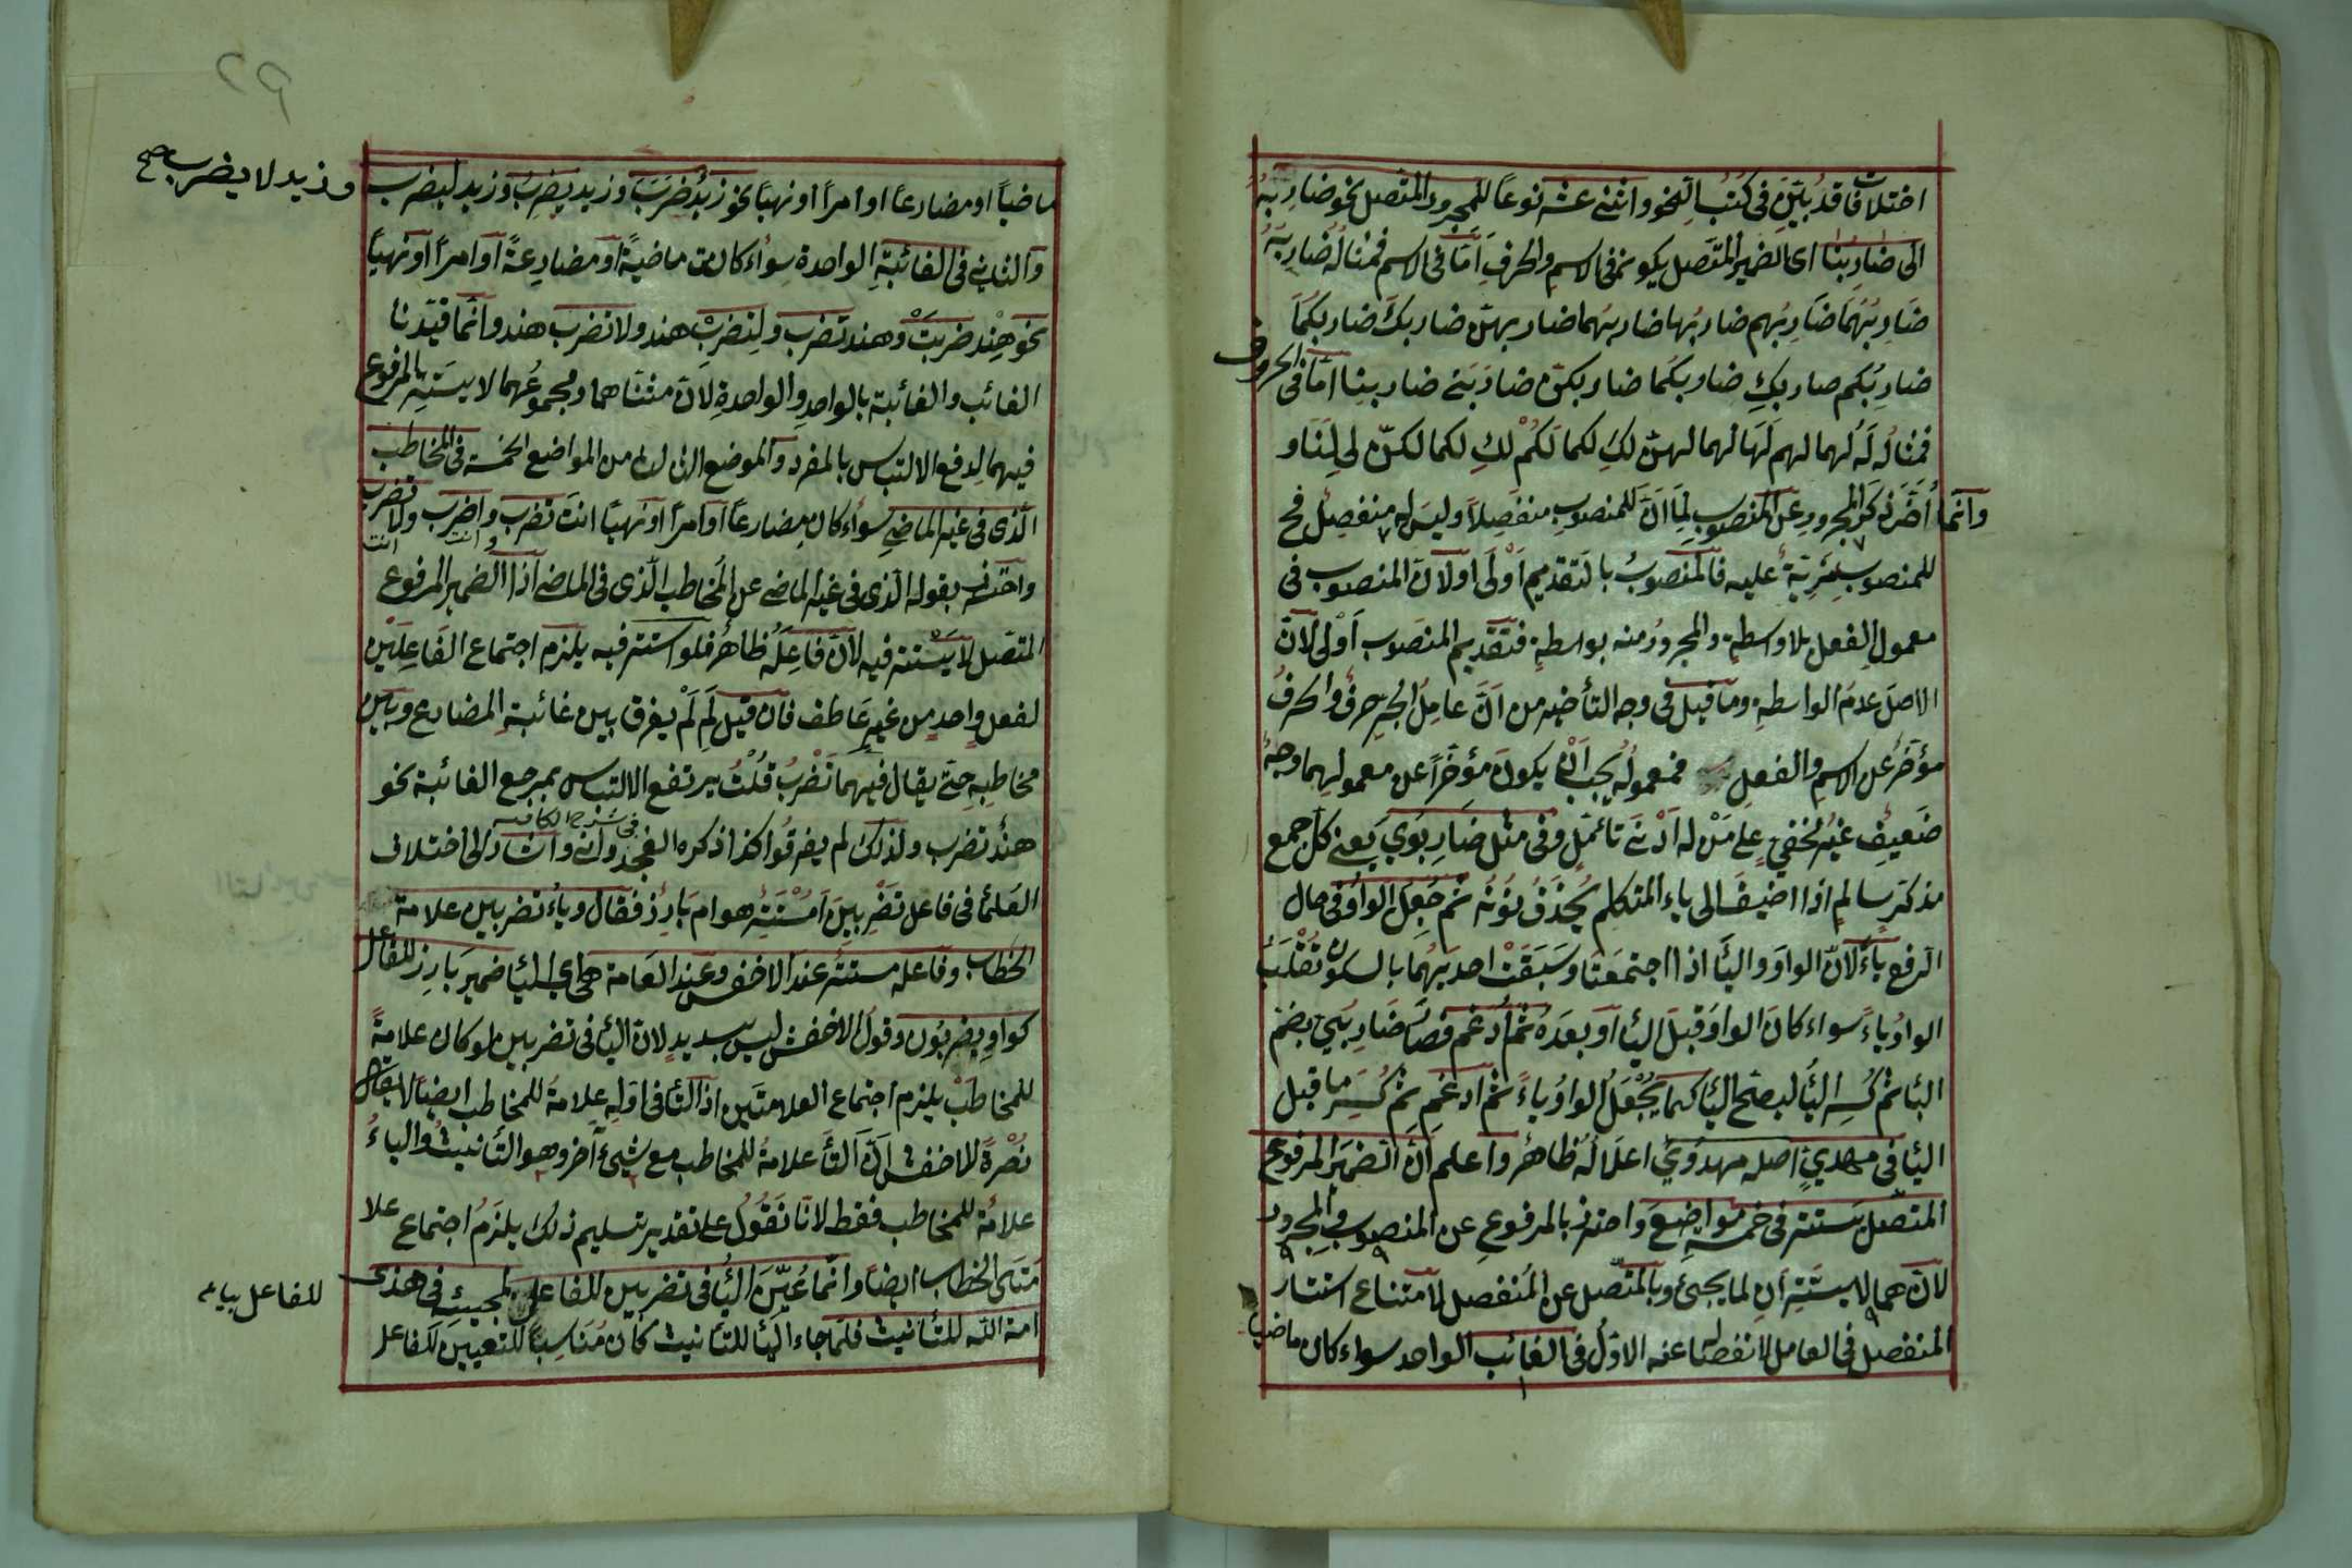 اختلافات قد بُيّن في كتب النحو واثنى عشر نوعاً للمجرور المتصل نحو ضاربُهُ
الى ضاربنا اى الضمير المتّصل يكون في الاسم والحرف اَمّا في الاسم فمثاله ضاربُهُ
ضاربُهُمَا ضاربُهم ضاربُها ضاربهُما ضاربهنّ ضاربكَ ضاربكُمَا
ضاربُكم ضاربكِ ضاربكَما ضاربكنّ ضاربى ضاربنا امّا في الحروف
فمثاله لَهُ لهما لهم لَهَا لهما لهنّ لكَ لكما لَكُمْ لكِ لكما لكنّ لى لَنَا و
وانّما اُخّر ذكر المجرور عن المنصوب لِمَا اَنّ للمنصوب منفصلاً وليس له منفصل فح
للمنصوب مَزِيّةٌ عليه فالمنصوبُ بالتقديم اَوْلَى اولانّ المنصوب في
معمول الفعل بلا واسطةٍ والمجرورُ منه بواسطةٍ فتقديم المنصوب اَوْلى لانّ
الاصلَ عدمُ الواسطةِ وما قيل في وجه التأخير من اَنّ عاملَ الجر حرفٌ والحرفُ
مؤخّرٌ عن الاسم والفعل فمعمولُهُ يجب اَنْ يكون مؤخّراً عن معموليهما وجهٌ
ضعيفٌ غير الخفي على مَنْ له اَدْنَى تأمّلٍ وفي مثل ضاربوى يعنى كلّ جمع
مذكر سالم اذا اضيف الى ياء المتكلم يُحْذَفُ نونُهُ ثم جُعِلَ الواوُ في حال
الرفع ياءً لانّ الواوَ والياَ اذا اجتمَعَتَا وسَبَقَتْ احديهُمَا بالسكون تُقْلَبُ
الواوُ ياءً سواء كان الواوُ قبل اليا او بعدَهُ ثم اُدغم فصار ضاربُيّ بضم
البا ثم كُسِر الباُ ليصحّ اليا كما يُجْعَلُ الواوُ ياءً ثم ادغم ثم كُسِرَ ما قبل
اليا في مهديٍّ اصله مهدُويٌ اعلاله ظاهرٌ واعلم اَنّ الضميرَ المرفوع
المتصل يستتر في خمسةِ مواضِعَ واحترز بالمرفوع عن المنصوب والمجرور
لانّهما لا يستتران لما يجئ وبالمتّصل عن المُنفصل لامتناع استتار
المنفصل في العامل لانفصاله عنه الاوّلُ في الغائب الواحد سواء كان ماضيا
ماضياً او مضارعاً او امراً او نهياً نحو زيدٌ ضَرَبَ وزيد يضربُ وزيد ليضرب
وزيد لا يضرب صح
والثانى في الغائبةِ الواحدة سواء كانت ماضيةً او مضارعةً او امراً او نهياً
نحو هِنْد ضربَتْ وهند تضرب ولِتضربْ هند ولا تضرب هند وانما قيّدنا
الغائب والغائبة بالواحد والواحدة لانّ مثنّاهما ومجموعُهما لا يستتر المرفوع
فيهما لدفع الالتباس بالمفرد والموضع الثالث من المواضع الخمسة في المخاطب
الّذى في غير الماضى سواء كان مضارعاً او امراً او نهياً انتَ تضرب واضرب ولا تضرب
انت
واحترز بقوله الّذى في غير الماضى عن المُخاطب الّذى في الماضى اذا الضمير المرفوع
المتّصل لا يَسْتتر فيه لانّ فاعله ظاهرٌ فلو استتر فيه يلزم اجتماع الفاعِلَيْن
لفعل واحدٍ من غير عاطف فان قيل لِمَ لَمْ يفرق بين غائبةِ المضارع وبين
مخاطبِهِ حتّى يقال فيهما تَضْرِبُ قُلْتُ يرتفع الالتباس بمرجع الغائبة نحو
هندٌ تضرب ولذلك لم يفرقوا كذا ذكره الفجدوانى واشار الى اختلاف
في شرح الكافية
العلما في فاعل تضربين اَمُسْتَتِرٌ هو ام بارز فقال وياءُ تضربين علامة
الخطاب وفاعله مستتر عند الاخفش وعند العامة هى اى اليا ضمير بارز للفاعل
كواو يضربُون وقول الاخفش ليس بسديدٍ لانّ الياَ في تضربين لو كان علامةً
للمخاطب يلزم اجتماع العلامتين اذ التا في اوّله علامة للمخاطب ايضاً لا يقال
نُصْرةً للاخفش اَنّ التاَ علامةُ للمخاطب مع شيئ آخر وهو التأنيثُ والياءُ
علامة للمخاطب فقط لانّا نَقُولُ على تقدير تسليم ذلك يلزمُ اجتماع علا
متى الخطاب ايضا وانّما عُيّنَ الياُ في تضربين للفاعل لمجيئه في هذى
للفاعل
امة اللّه للتأنيث فلمّا جاء اليا للتأنيث كان مُناسِباً للتعيين للفاعل